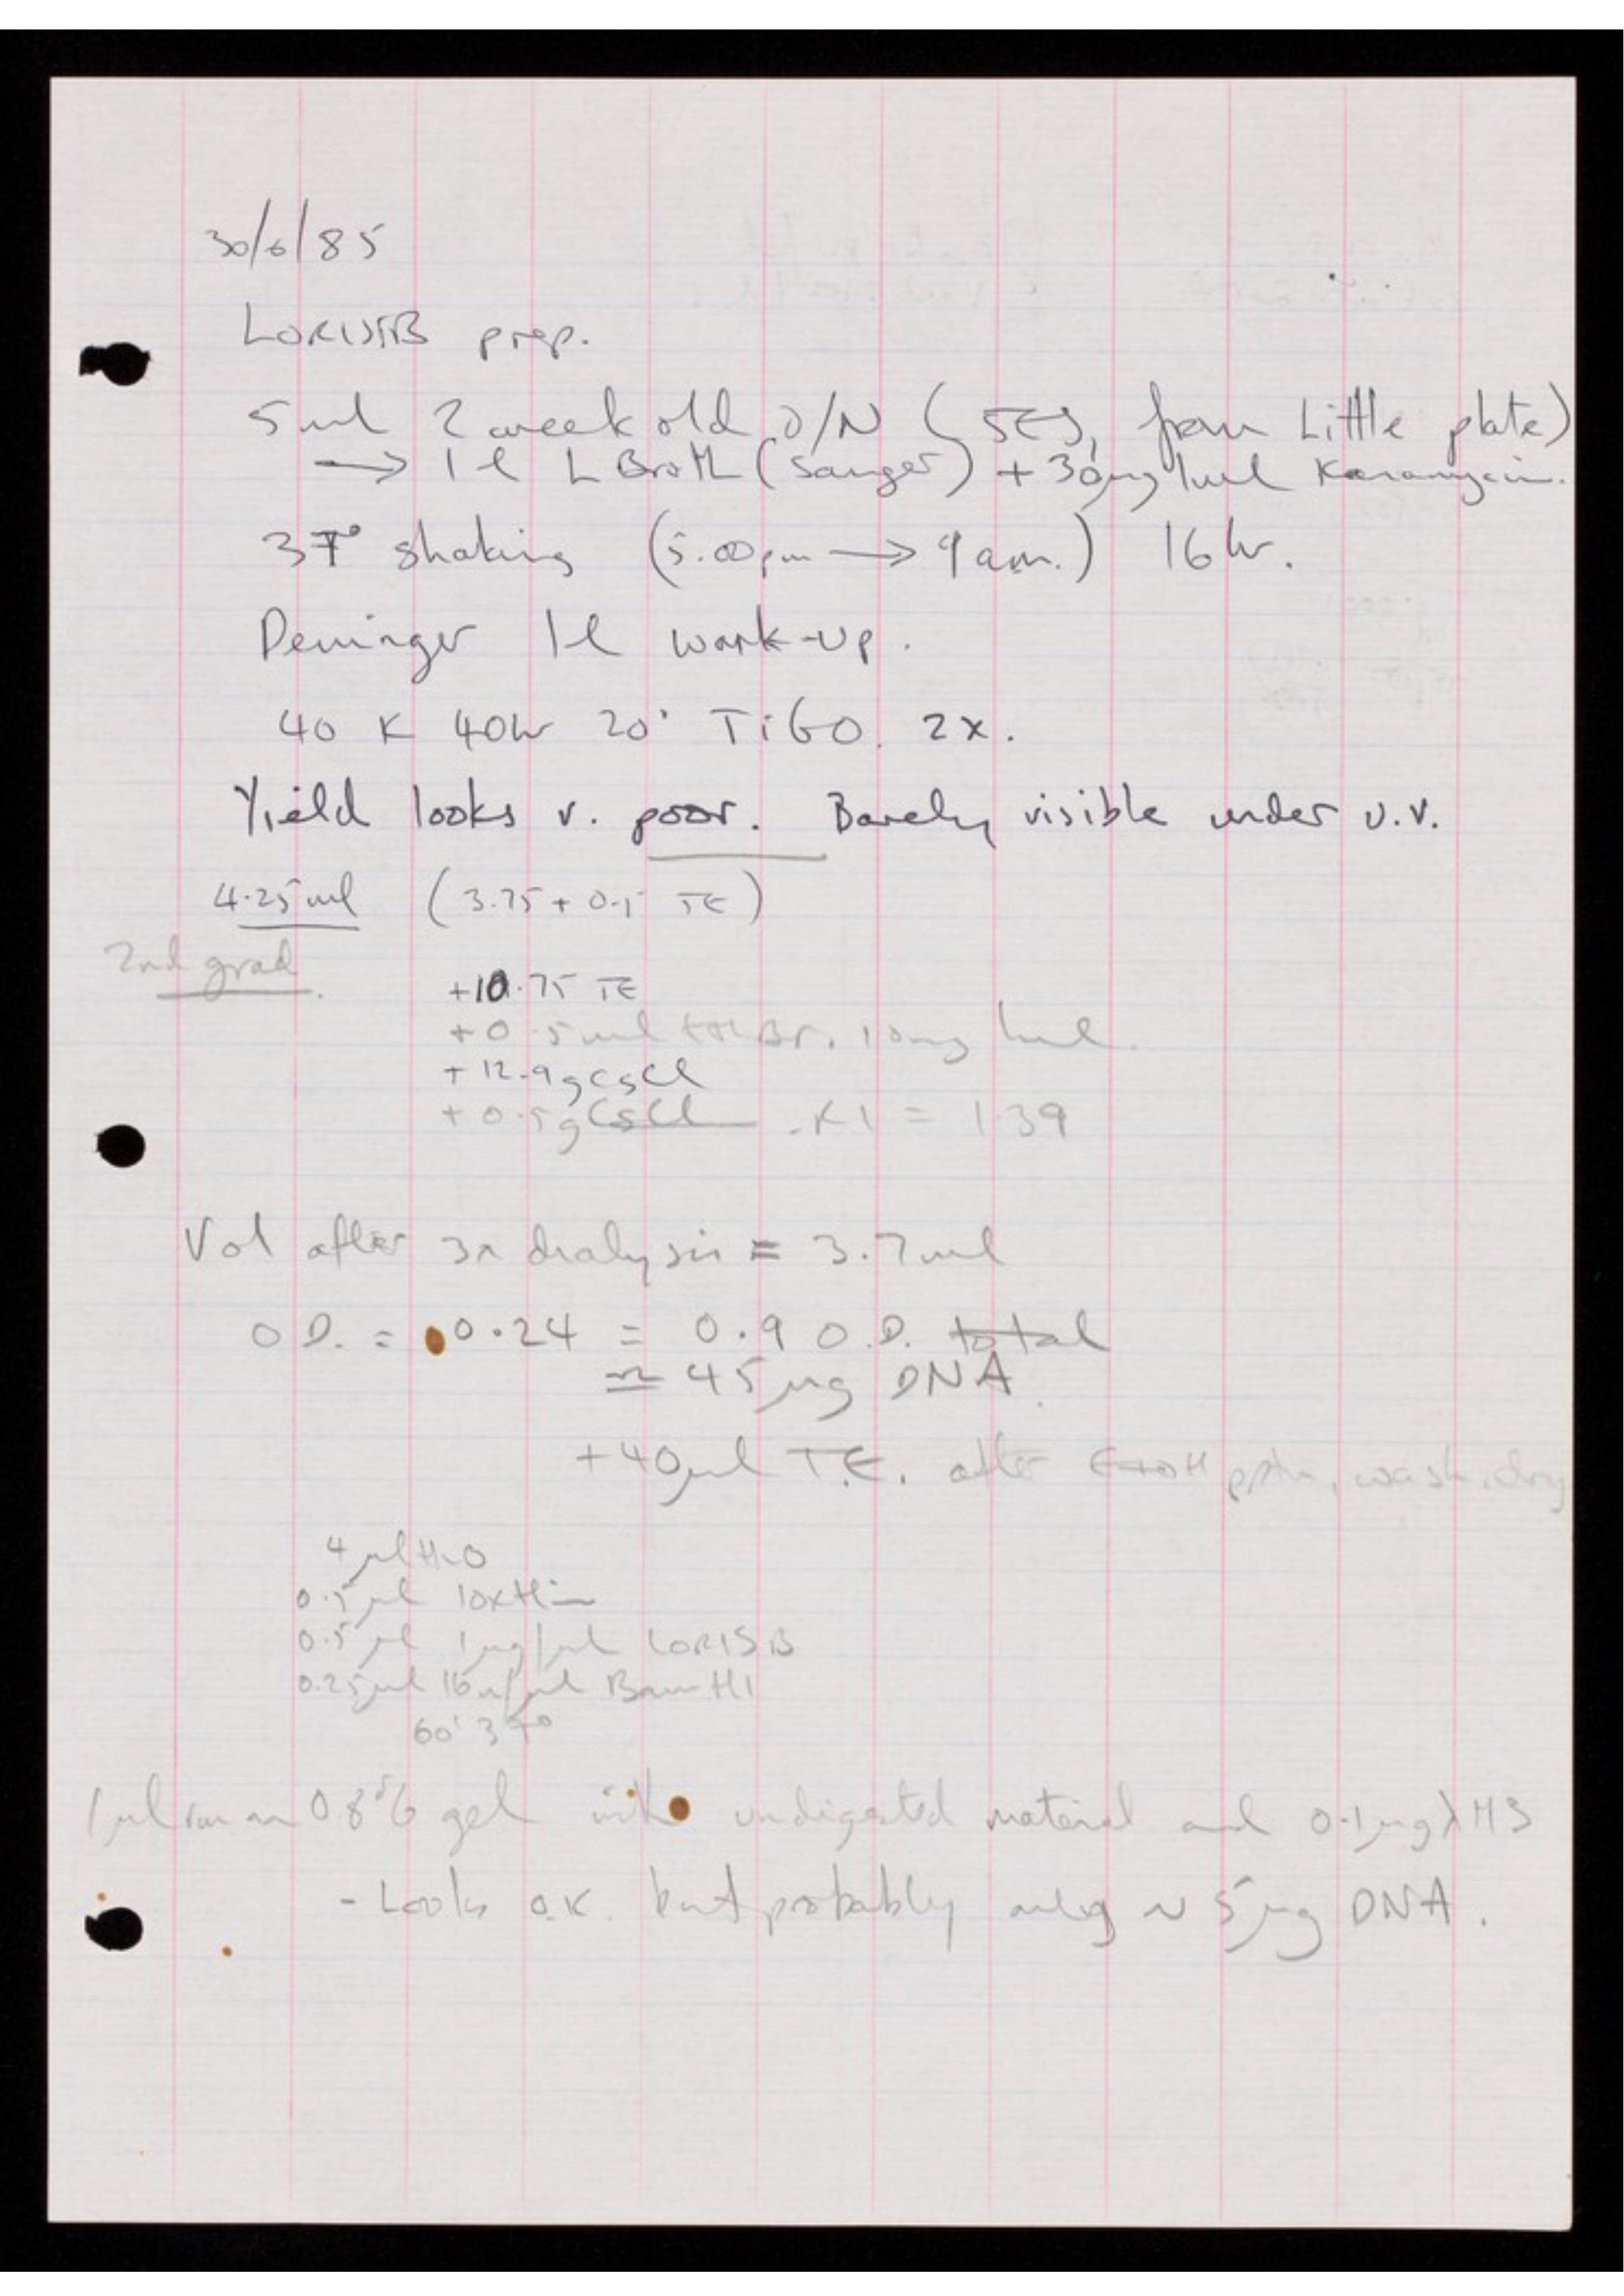 30/6/85
LORIST B prep.
5 ml 2 week old O/N ( from Little plate)
→ 1 l L Broth (Sanger) + 30µg/ml Kanamycin.
37° shaking (5.00pm → 9 am.) 16 hr.
Deninger 1l work-up.
40 K 40hr 20° Ti60. 2x.
Yield looks v. poor. Barely visible under U.V.
4.25 ml (3.75 + 0.5 TE)
2nd grad.
+10.75 TE
+0.5 ml EthBr. 10mg/ml.
+12.9g CsCl
+0.5g CsCl = 1.39
Vol after 3x dialysis = 3.7 ml
O.D. = 0.24 = 0.9 O.D. total
≃ 45µg DNA.
+40µl T.E. after EtOH pptn, wash, dry
4 µl H2O
0.5 µl 10xHin
0.5 µl 1µg/µl LORIS B
0.25µl 16u/µl Bam H1
60' 37°
1µl run on 0.8% gel with undigested material and 0.1µg λ H3
- Looks O.K. but probably only ~ 5µg DNA.